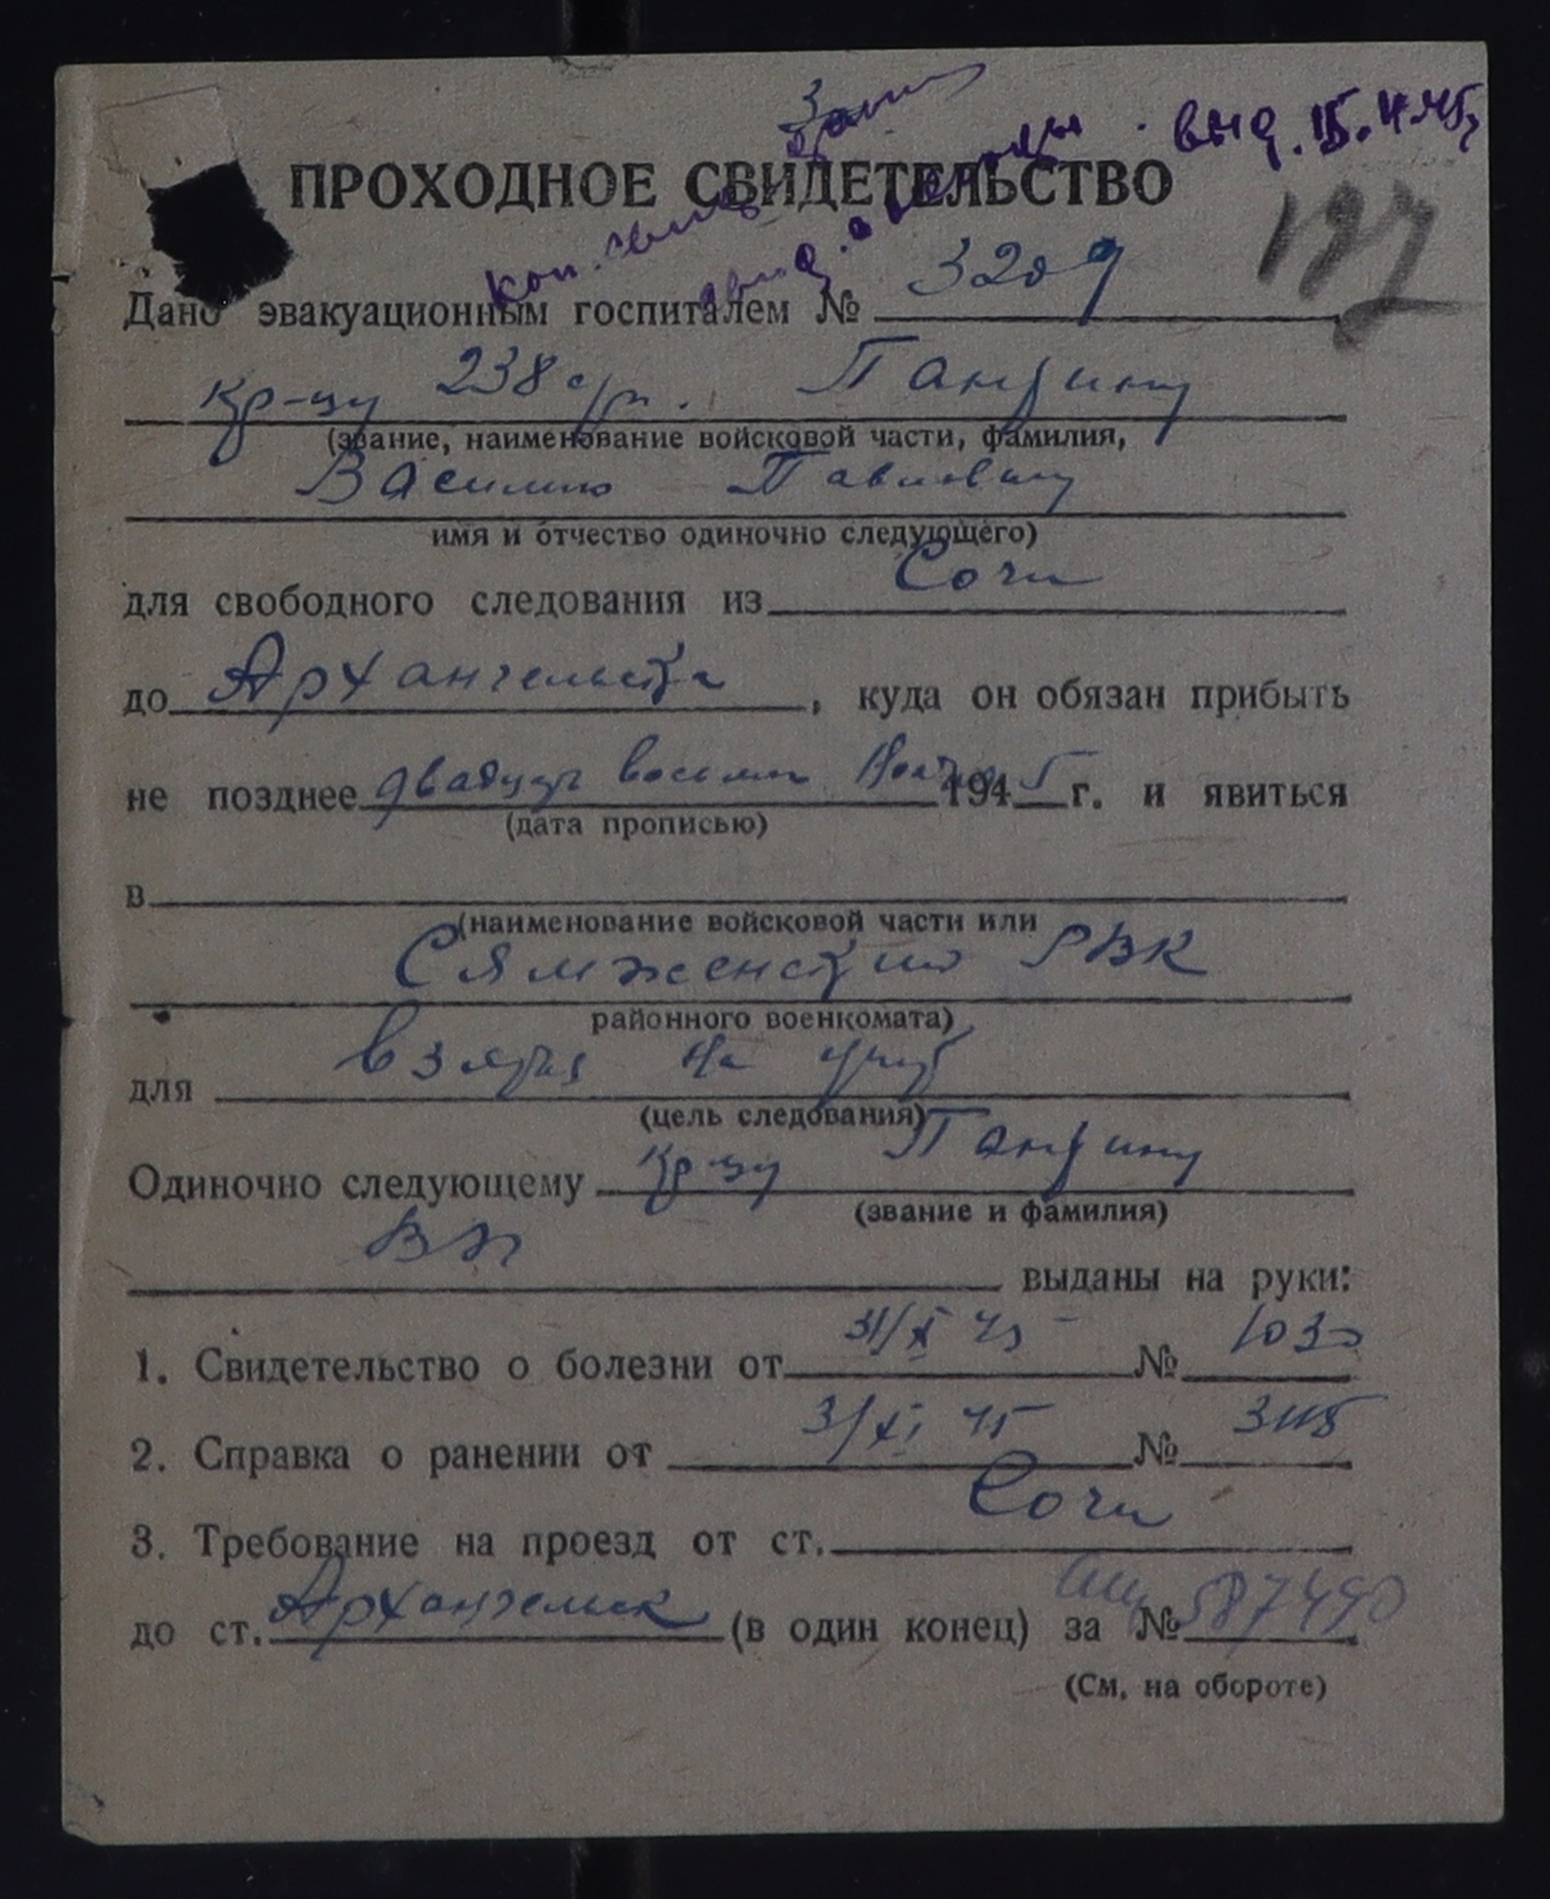 выд. 15.II 45г
ПРОХОДНОЕ СВИДЕТЕЛЬСТВО
127
Дано эвакуационным госпиталем № 3209
кр-цу 238 с/п. Панфину
(звание, наименование войсковой части, фамилия,
Василию Павловичу
имя и отчество одиночно следующего)
для свободного следования из Сочи
до Архангельска, куда он обязан прибыть
не позднее двадцать восьми Ноября 1945 г. и явиться
в
(наименование войсковой части или
Сямженский РВК
районного военкомата)
для взятия на учет
(цель следования)
Одиночно следующему кр-цу Панфину
(звание и фамилия)
ВП выданы на руки:
1. Свидетельство о болезни от 31/X 45 № 1030
2. Справка о ранении от 3/XI 45 №
3. Требование на проезд от ст. Сочи
до ст. Архангельск (в один конец) за № 587490
(См. на обороте)